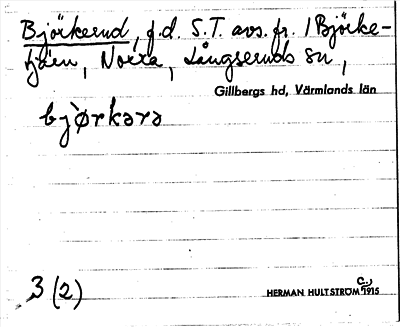 Björkerud, f.d. S.T. avs. fr. 1 Björke-
tjärn, Norra, Långseruds sn,
Gillbergs hd, Värmlands län
bjørkərə
3 (2)
HERMAN HULTSTRÖM C:a 1915